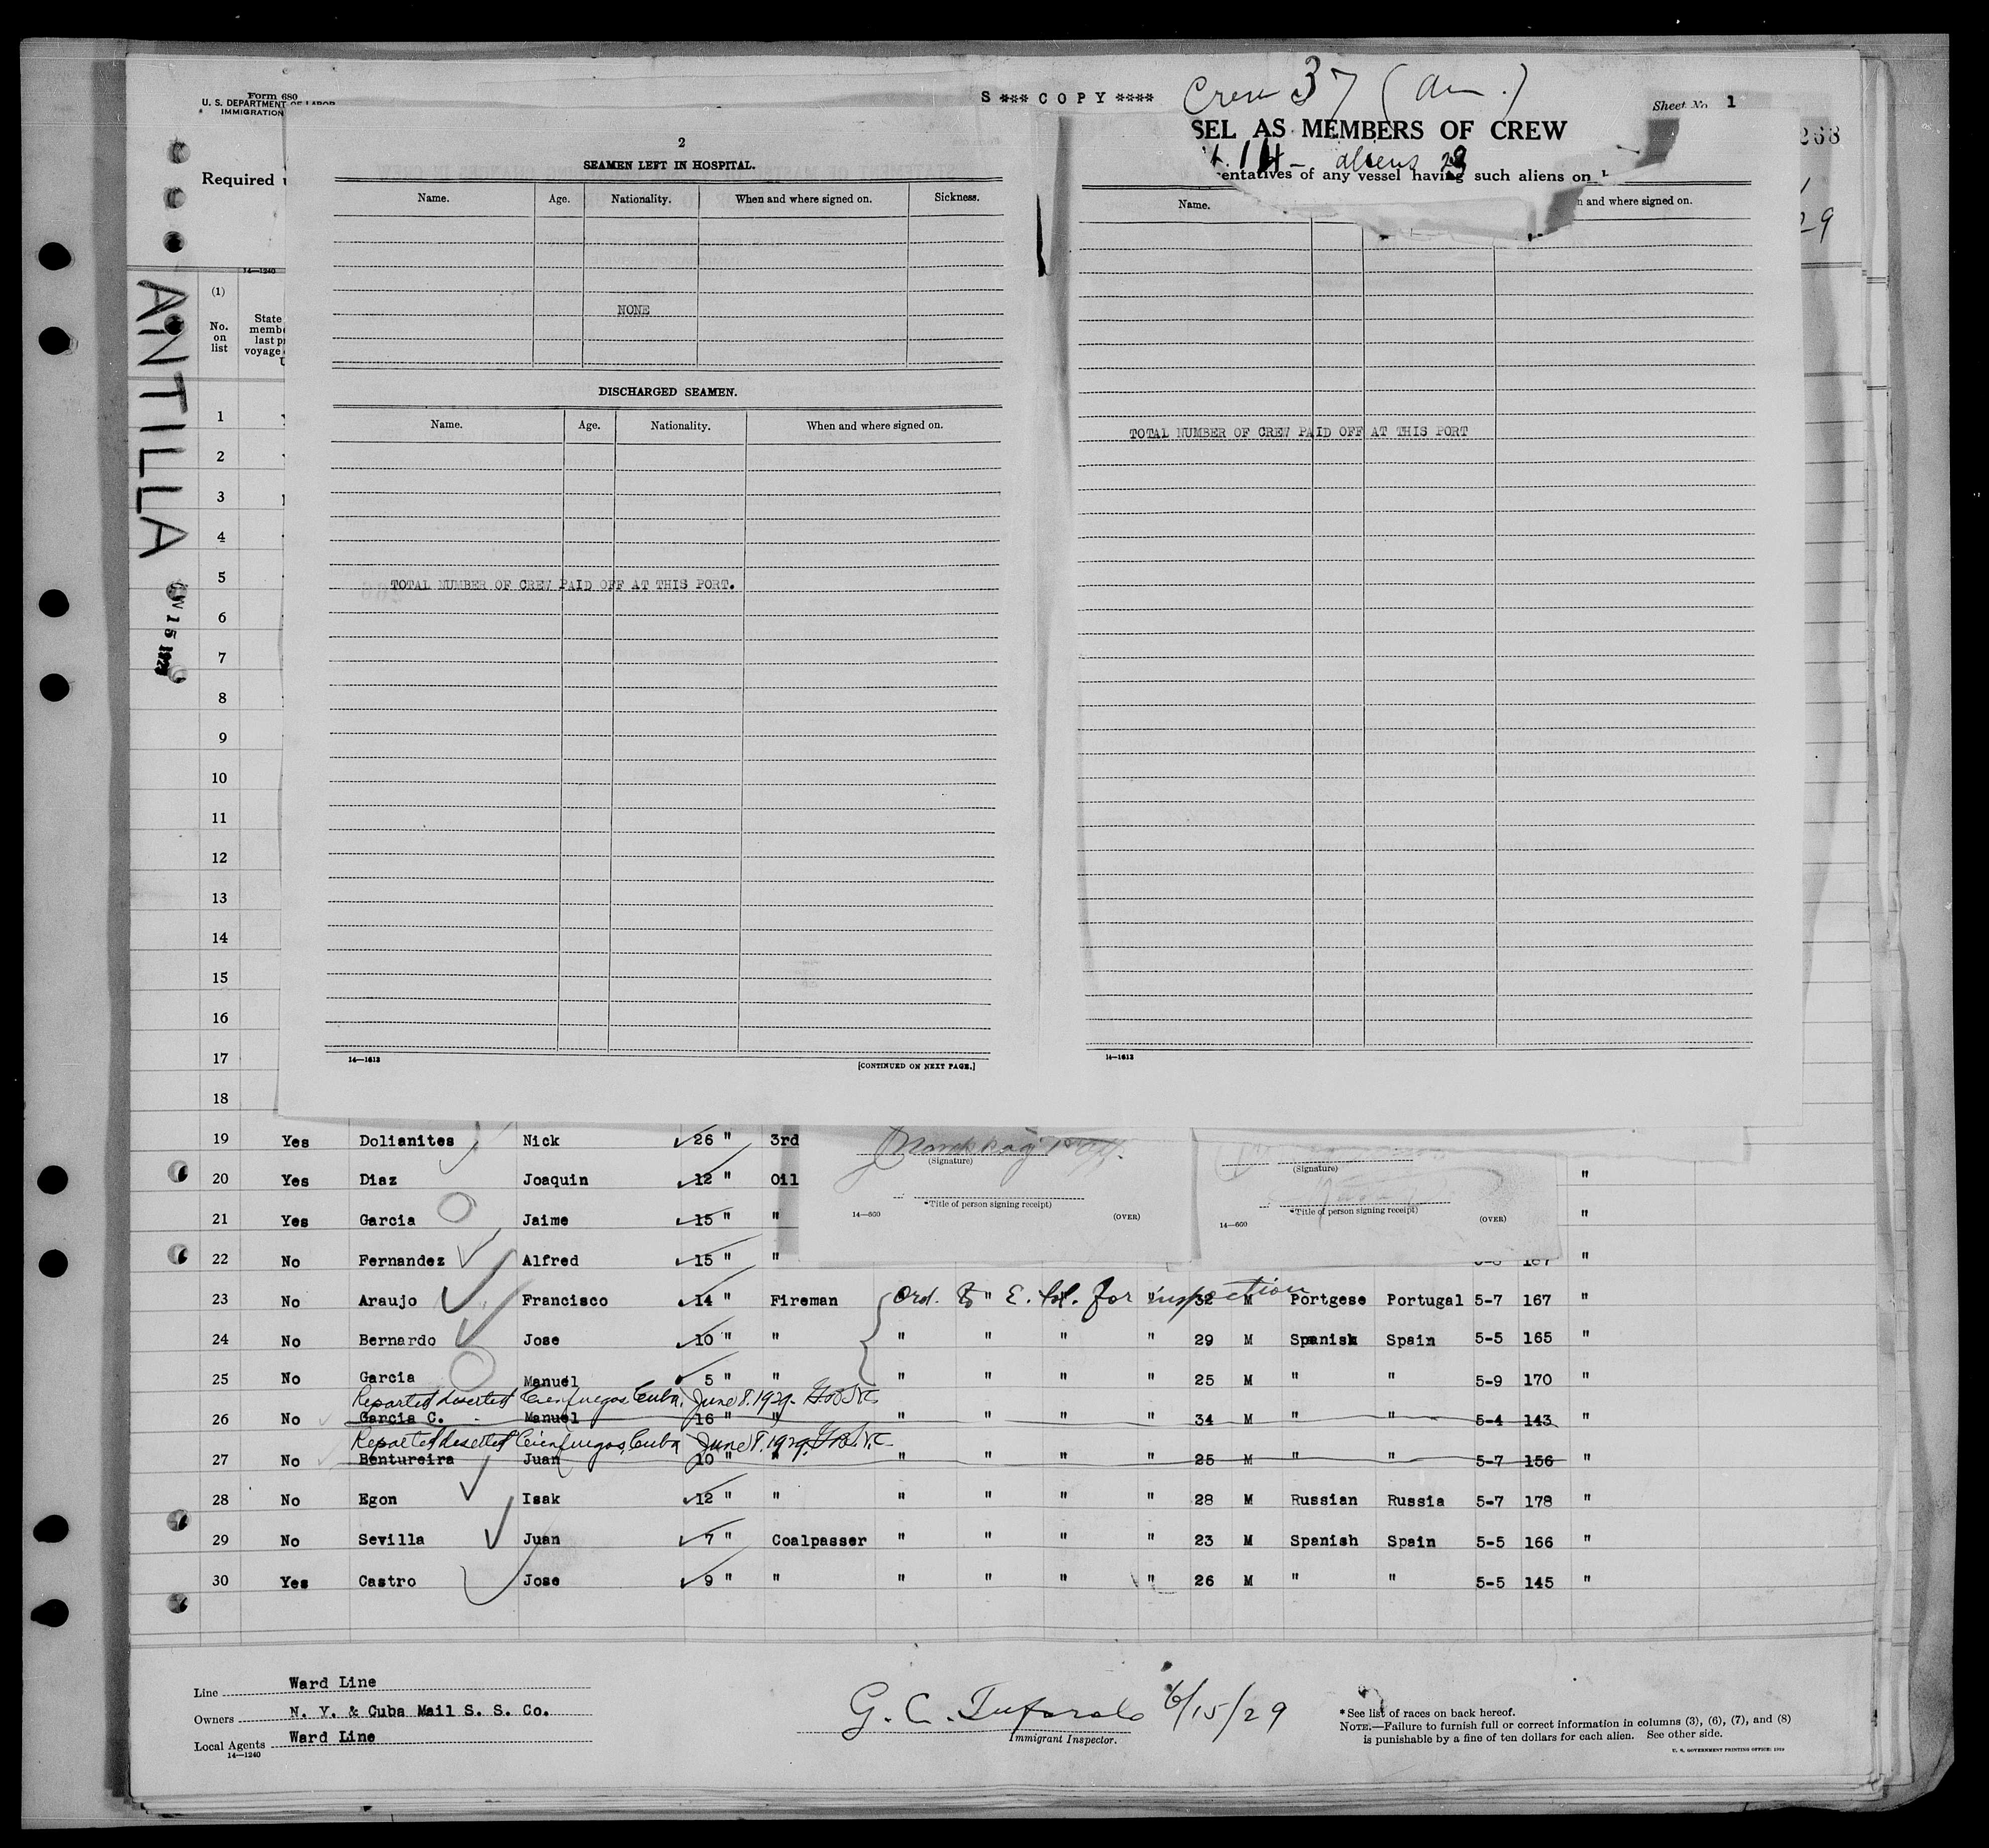 Form 680
U. S. DEPARTMENT OF LABOR
IMMIGRATION
S *** C O P Y ****
Crew 37 (Am.)
Sheet No. 1
SEL AS MEMBERS OF CREW
aliens
268
Required
entatives of any vessel having such aliens on
29
2
SEAMEN LEFT IN HOSPITAL.
Name. Age. Nationality. When and where signed on. Sickness.
NONE
DISCHARGED SEAMEN.
Name. Age. Nationality. When and where signed on.
TOTAL NUMBER OF CREW PAID OFF AT THIS PORT.
14—1613
[CONTINUED ON NEXT PAGE.]
Name. n and where signed on.
TOTAL NUMBER OF CREW PAID OFF AT THIS PORT
14—1613
ANTILLA
14—1240
(1)
No. on list
State
memb
last p
voyage
1
2
3
4
5
6
7
8
9
10
11
12
13
14
15
16
17
18
19 Yes Dolianites Nick 26 " 3rd
20 Yes Diaz Joaquin 12 " Oil "
21 Yes Garcia Jaime 15 " " "
22 No Fernandez Alfred 15 " " 167 "
(Signature)
*Title of person signing receipt)
14—600
(OVER)
(Signature)
*Title of person signing receipt)
14—600
(OVER)
Ord. to E. Isl. for inspection
23 No Araujo Francisco 14 " Fireman " " " 32 M Portgese Portugal 5-7 167 "
24 No Bernardo Jose 10 " " " " " " 29 M Spanish Spain 5-5 165 "
25 No Garcia Manuel 5 " " " " " " 25 M " " 5-9 170 "
Reported deserted Cienfuegos, Cuba, June 8. 1929.
26 No Garcia C. Manuel 16 " " " " " " 34 M " " 5-4 143 "
Reported deserted Cienfuegos, Cuba June 8. 1929.
27 No Bentureira Juan 10 " " " " " " 25 M " " 5-7 156 "
28 No Egon Isak 12 " " " " " " 28 M Russian Russia 5-7 178 "
29 No Sevilla Juan 7 " Coalpasser " " " " 23 M Spanish Spain 5-5 166 "
30 Yes Castro Jose 9 " " " " " " 26 M " " 5-5 145 "
Line Ward Line
Owners N. Y. & Cuba Mail S. S. Co.
Local Agents Ward Line
14—1240
G. C. 6/15/29
Immigrant Inspector.
*See list of races on back hereof.
NOTE.—Failure to furnish full or correct information in columns (3), (6), (7), and (8)
is punishable by a fine of ten dollars for each alien. See other side.
U. S. GOVERNMENT PRINTING OFFICE: 1929